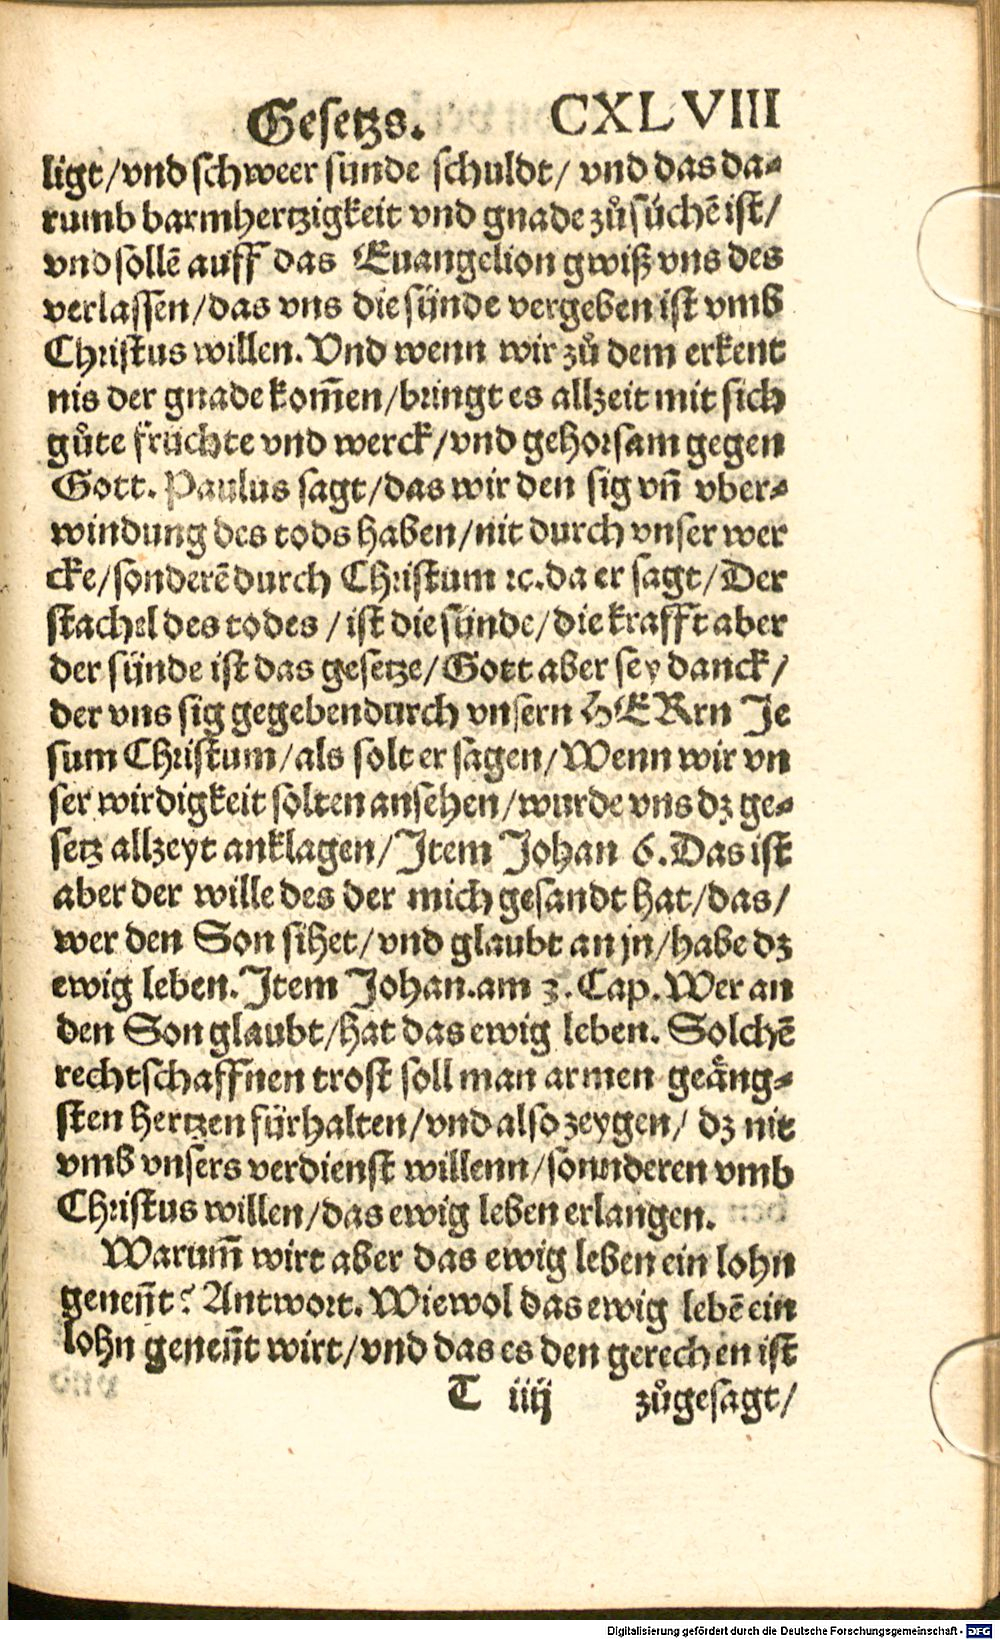 Gesetzs. CXLVIII
ligt/vnd schweer sünde schuldt/ vnd das da-
rumb barmhertzigkeit vnd gnade zůsüchē ist/
vnd söllē auff das Euangelion gwiß vns des
verlassen/das vns die sünde vergeben ist vmb
Christus willen. Vnd wenn wir zů dem erkent
nis der gnade kom̄en/bringt es allzeit mit sich
gůte früchte vnd werck/vnd gehorsam gegen
Gott. Paulus sagt/das wir den sig vn̄ vber-
windung des tods haben/nit durch vnser wer
cke/sonderē durch Christum ꝛc. da er sagt/Der
stachel des todes / ist die sünde/die krafft aber
der sünde ist das gesetze/Gott aber sey danck/
der vns sig gegeben durch vnsern HERrn Je
sum Christum/als solt er sagen/Wenn wir vn
ser wirdigkeit solten ansehen/wurde vns dz ge-
setz allzeyt anklagen/Item Johan 6. Das ist
aber der wille des der mich gesandt hat/das/
wer den Son sihet/vnd glaubt an jn/habe dz
ewig leben. Item Johan. am 3. Cap. Wer an
den Son glaubt/hat das ewig leben. Solchē
rechtschaffnen trost soll man armen geäng-
sten hertzen fürhalten/vnd also zeygen/ dz nit
vmb vnsers verdienst willenn/sonnderen vmb
Christus willen/das ewig leben erlangen.
Warum̄ wirt aber das ewig leben ein lohn
genen̄t? Antwort. Wiewol das ewig lebē ein
lohn genen̄t wirt/vnd das es den gerechen ist
T iiij zůgesagt/
Digitalisierung gefördert durch die Deutsche Forschungsgemeinschaft - DFG